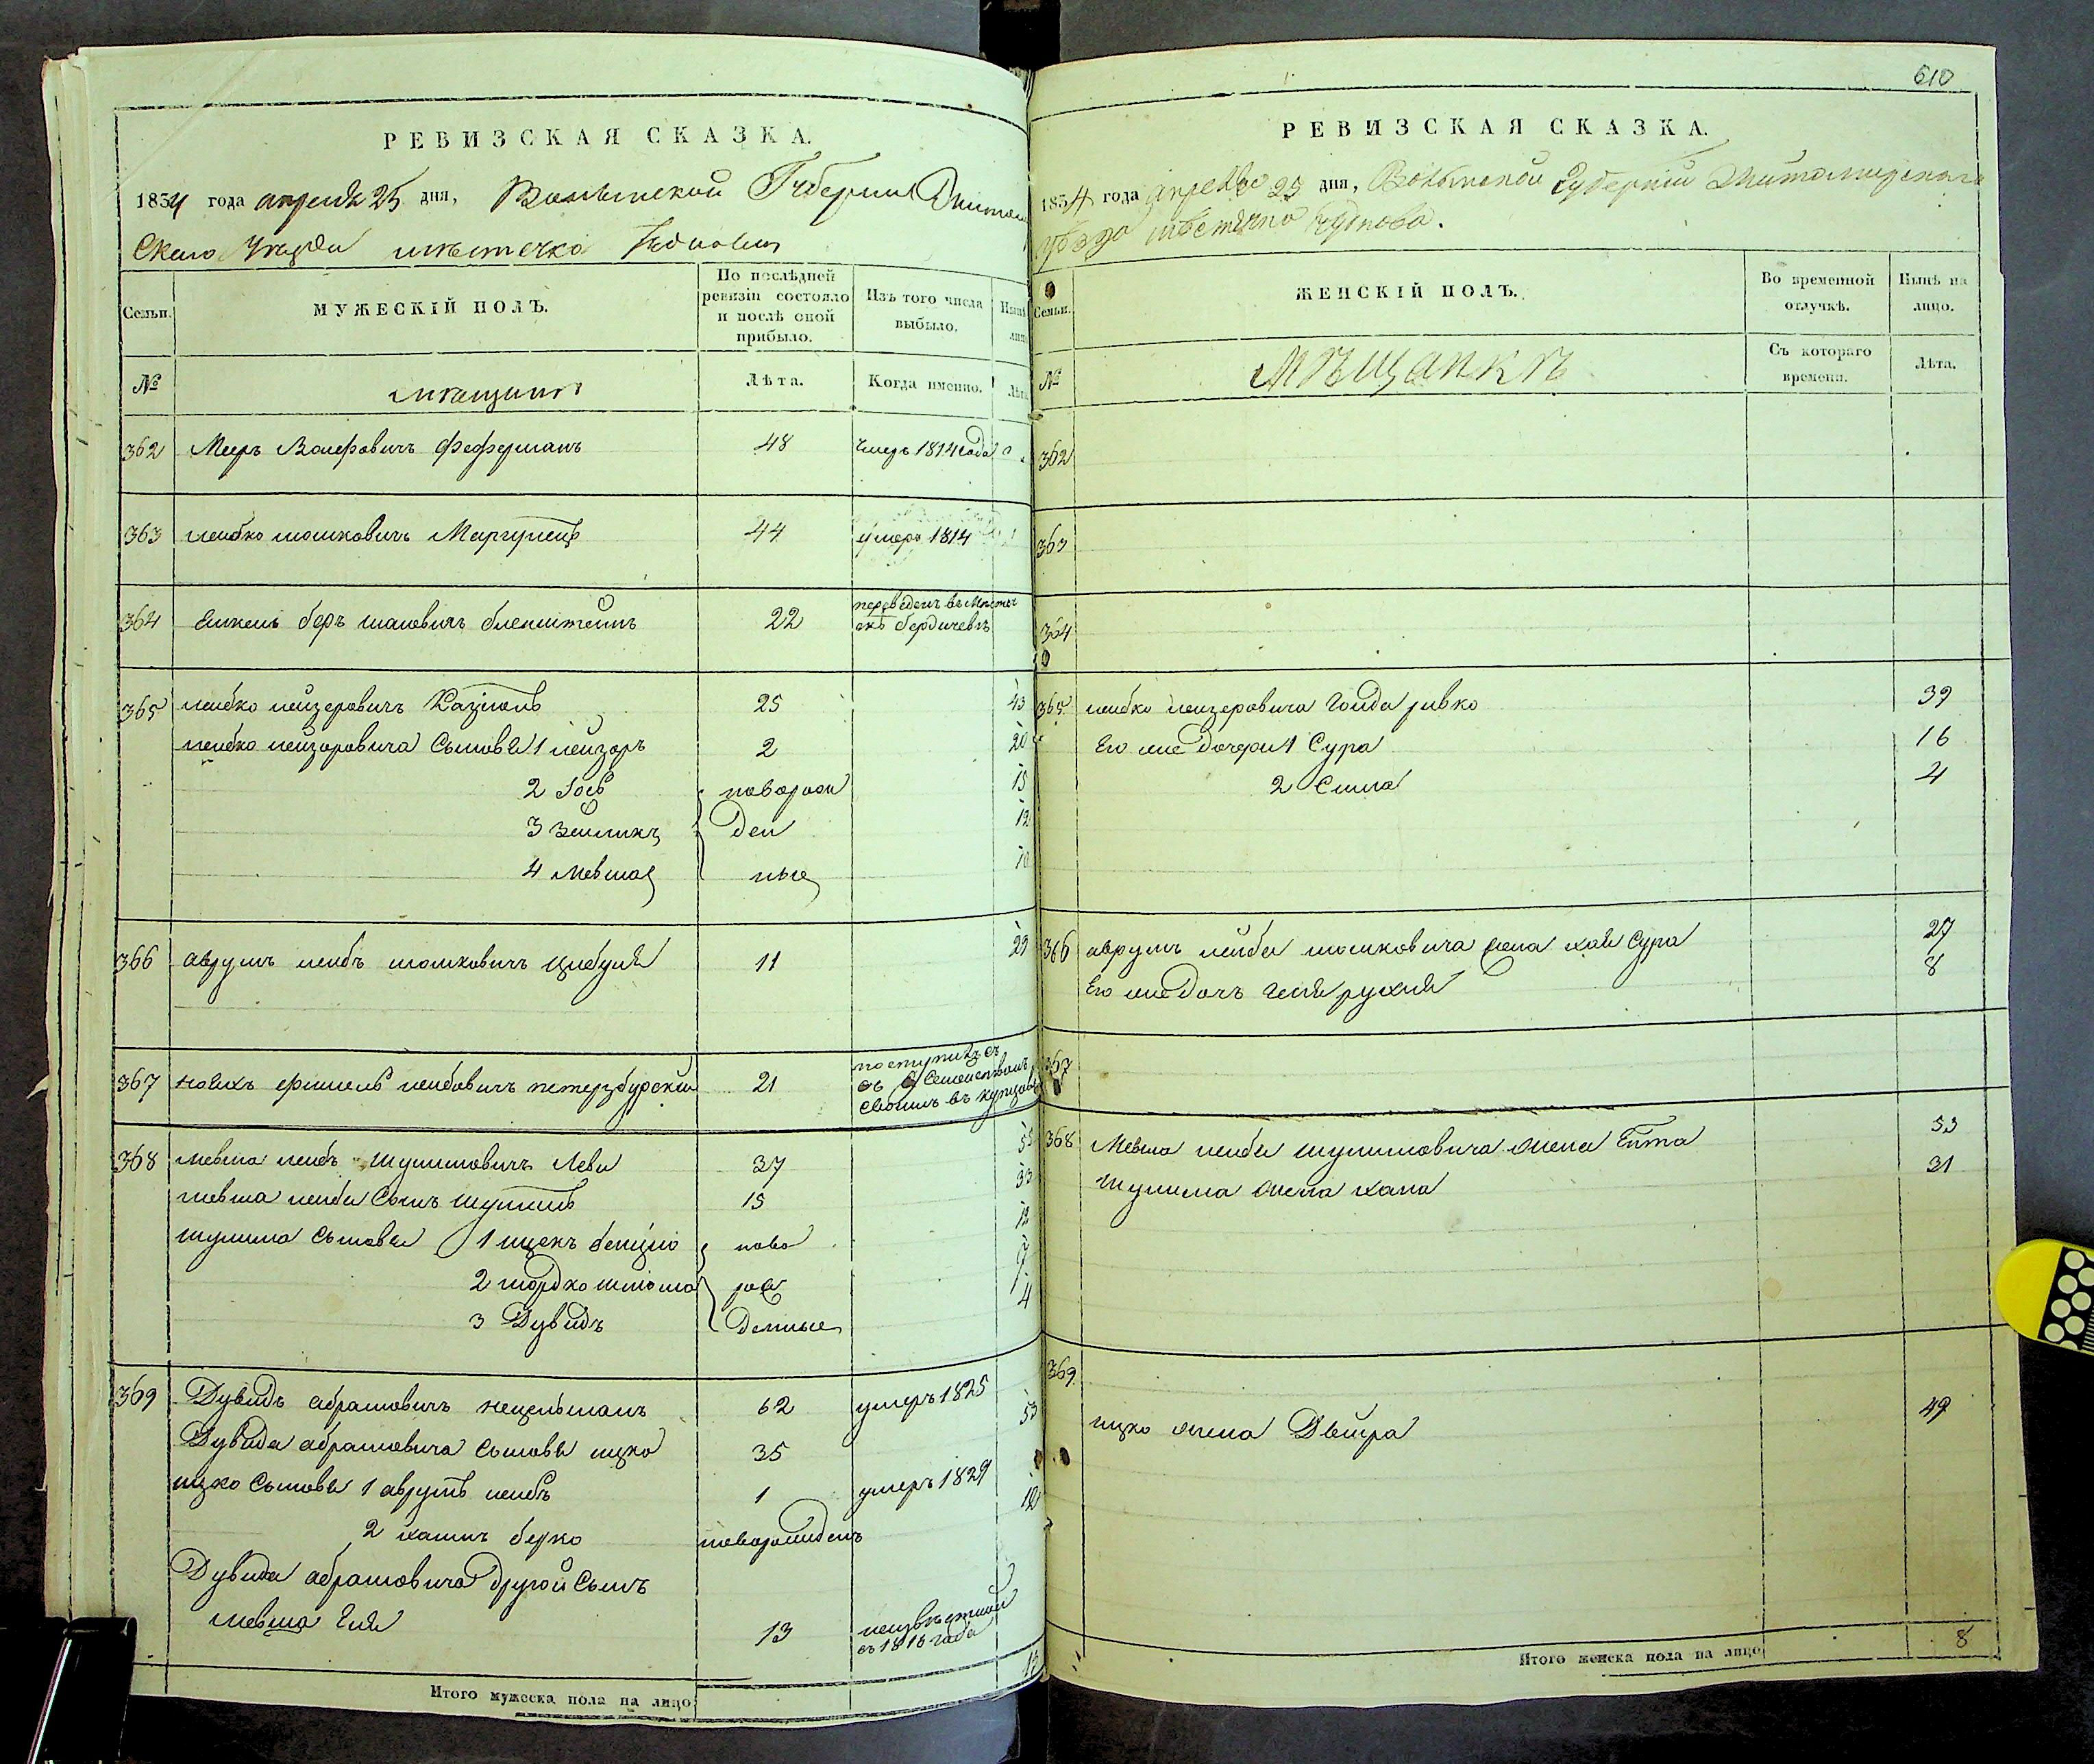 РЕВИЗСКАЯ СКАЗКА.
1854 года апреля 25 дня, Волынской Губернии Житоми
Скаго Уезда местечка Чуднова
Семьи.
МУЖЕСКІЙ ПОЛЪ.
По послѣдней ревизіи состояло и послѣ оной прибыло.
Изъ того числа выбыло.
№
мещане
Лѣта.
Когда именно.
362 Мееръ Волфовичъ Феферманъ 48 Умеръ 1814 года
363 лейбко мошковичъ Маргулецъ 44 умеръ 1814
364 беръ 22 переведенъ въ местечко бердичевъ
365 лейбко лейзеровичъ 25 43
лейбко лейзоровича Сыновья 1 лейзоръ 2 20
2 новорож 15
3 Зейликъ ден 12
4 мевша ные 10
366 аврумъ лейбъ мошковичъ Цибуля 11 29
367 фишель лейбовичъ петерзбурскій 21 поступилъ съ Семействомъ своимъ въ купцы
368 мевша лейбъ шулимовичъ Леви 37 55
мевша лейбы Сынъ шулимъ 15 33
шулима Сыновья 1 ицекъ бенцио ново 12
2 мордко шлиома рож 9
3 Дувидъ денные 4
369 Дувидъ абрамовичъ 62 умеръ 1825
Дувида абрамовича Сыновья ицко 35 53
ицко Сыновья 1 аврумъ лейбъ 1 умеръ 1829
2 хаимъ берко новорожденъ 12
Дувида абрамовича другой Сынъ
мевша Еля 13 неизвестной съ 1816 года
Итого мужеска пола на лицо
610
РЕВИЗСКАЯ СКАЗКА.
1854 года апреля 25 дня, Волынской Губерніи Житомирскаго
уѣзда мѣстечко Чуднова.
Семьи.
ЖЕНСКІЙ ПОЛЪ.
Во временной отлучкѣ.
Нынѣ на лицо.
№
Мѣщанкѣ
Съ котораго времени.
Лѣта.
362
363
364
365 лейбко лейзеровича Голда ривко 39
Его же дочери 1 Сура 16
2 Сима 4
366 аврумъ лейбы мошковича жена хая Сура 27
Его же дочь рухля 8
367
368 Мевша лейбы шулимовича жена Ента 53
Шулима жена хана 31
369
ицко жена Двейра 49
Итого женска пола на лицо 8